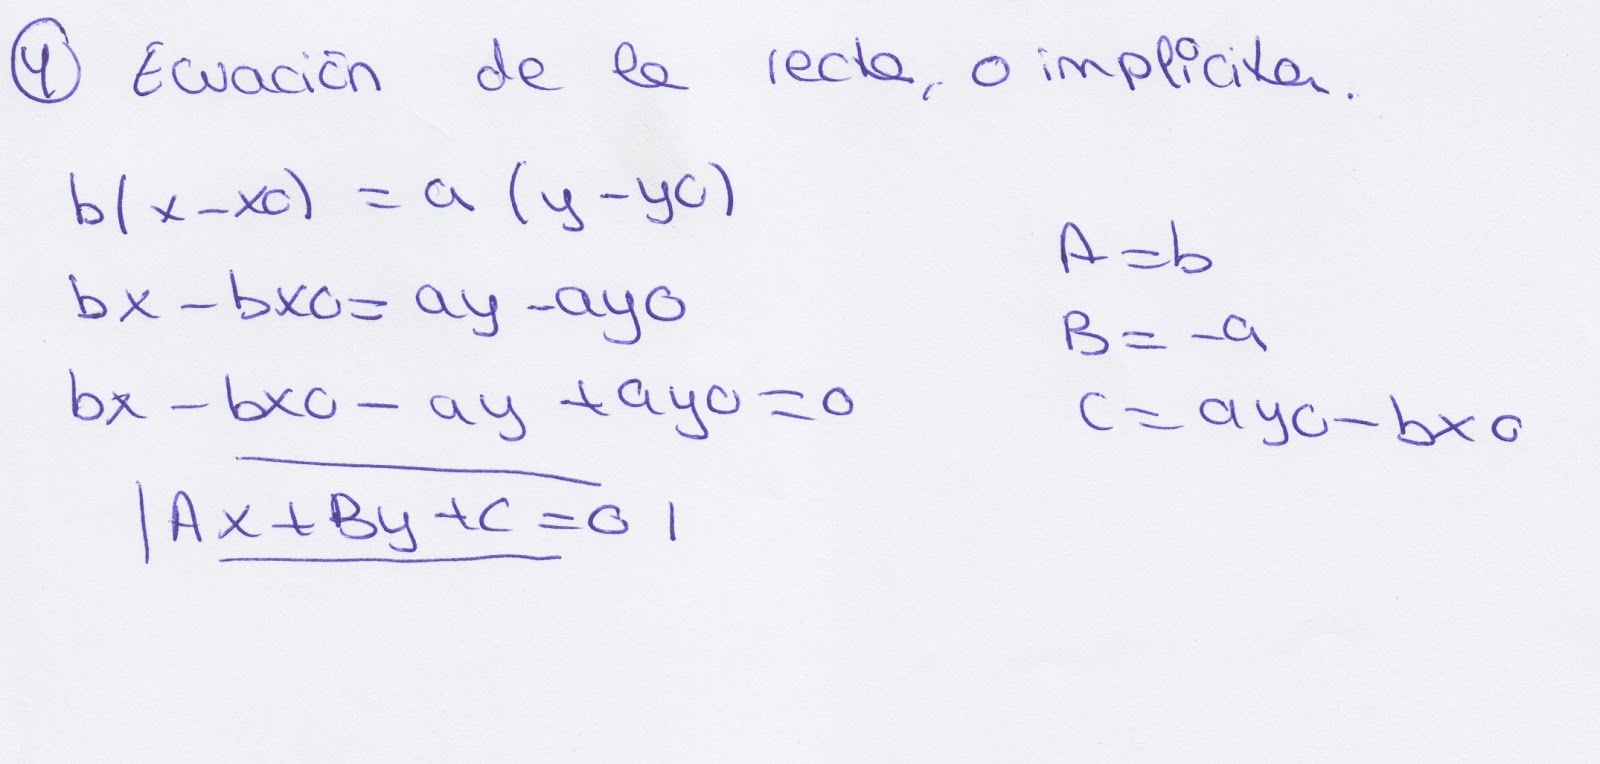 ④ Ecuación de la recta, o implícita.
b(x-x0) = a (y-y0)
bx - bx0 = ay - ay0
bx - bx0 - ay + ay0 = 0
|Ax + By + C = 0|
A = b
B = -a
C = ay0 - bx0